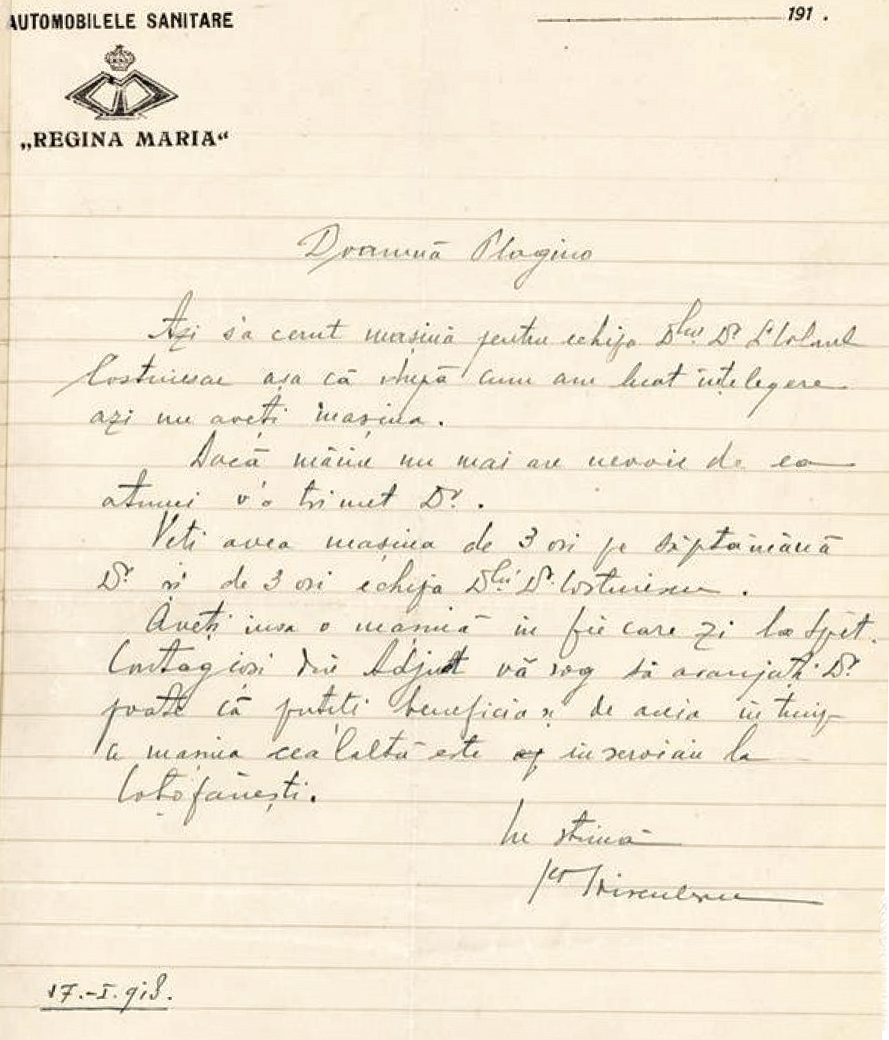 AUTOMOBILELE SANITARE
191 .
„REGINA MARIA“
Doamnă Plagino
Azi s'a cerut mașină pentru echipa Dlui Dr
Costinescu așa că după cum am luat ințelegere
azi nu aveți mașina.
Dacă mâine nu mai are nevoie de ea
atunci v'o trimet Dv.
Veti avea mașina de 3 ori pe săptămână
Dv și de 3 ori echipa Dlui Dr. Costinescu.
Aveți insa o mașină in fie care zi la Spit.
Contagioși din Adjud vă rog să aranjați Dv.
poate că puteti beneficia și de aceia in timp
ce mașina cea'laltă este in serviciu la
Cotofănești.
Cu stimă
17.-I.918.